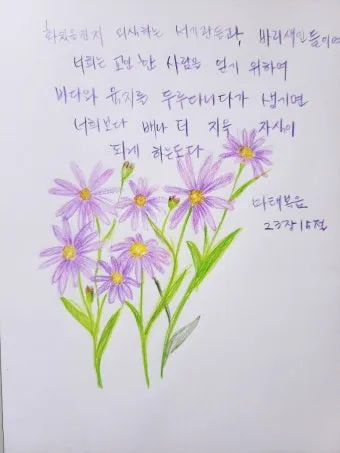 화있을진저 외식하는 서기관들과 바리새인들이여
너희는 교인 한 사람을 얻기 위하여
바다와 육지를 두루다니다가 생기면
너희보다 배나 더 지옥 자식이
되게 하는도다
마태복음
23장 15절